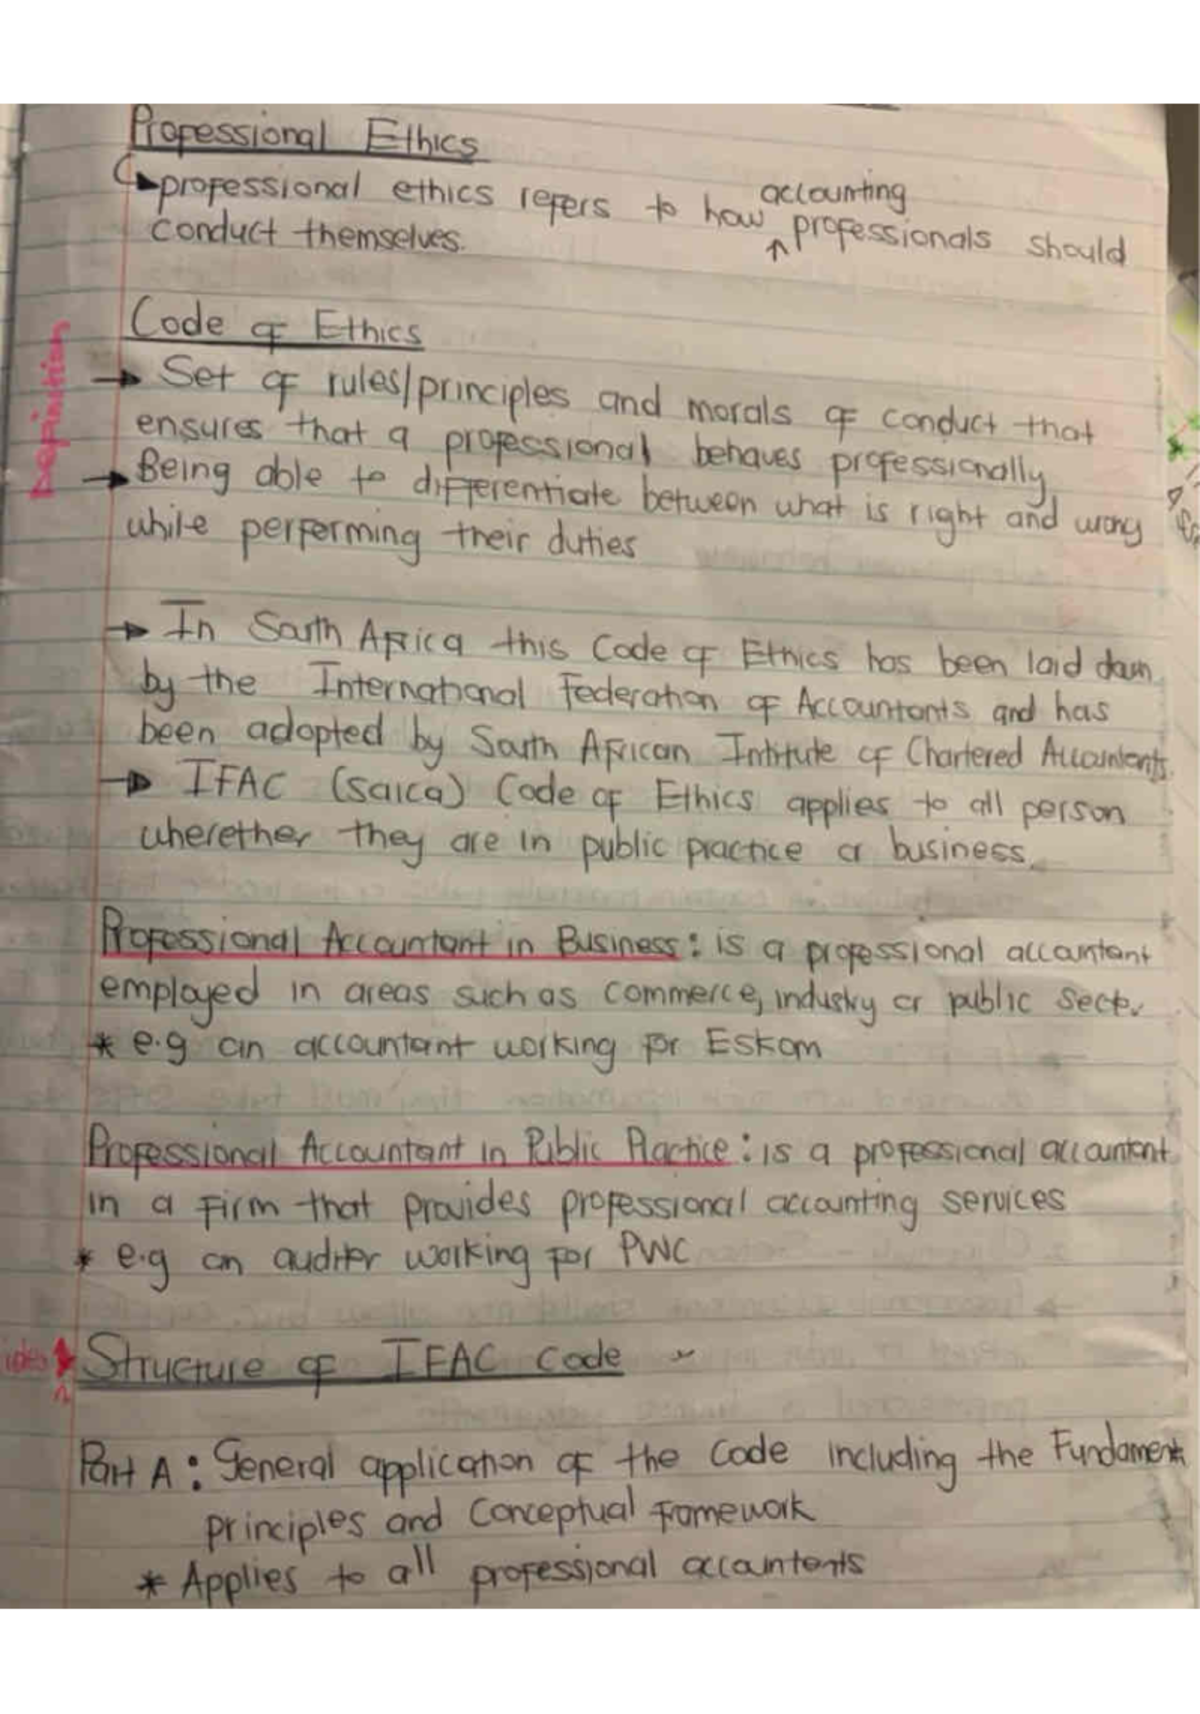 Professional Ethics
professional ethics refers to how accounting professionals should
conduct themselves.
Code of Ethics
Definition
→ Set of rules/principles and morals of conduct that
ensures that a professional behaves professionally
→ Being able to differentiate between what is right and wrong
while performing their duties
→ In South Africa this Code of Ethics has been laid down
by the International Federation of Accountants and has
been adopted by South African Intitute of Chartered Accountants.
→ IFAC (saica) Code of Ethics applies to all person
wherether they are in public practice or business.
Professional Accountant in Business: is a professional accountant
employed in areas such as commerce, industry or public sect.
* e.g an accountant working for Eskom
Professional Accountant in Public Practice: is a professional accountant
in a firm that provides professional accounting services
* e.g an auditor working for PWC
Structure of IFAC Code
Part A: General application of the Code including the Fundament
principles and Conceptual Framework
* Applies to all professional accountents